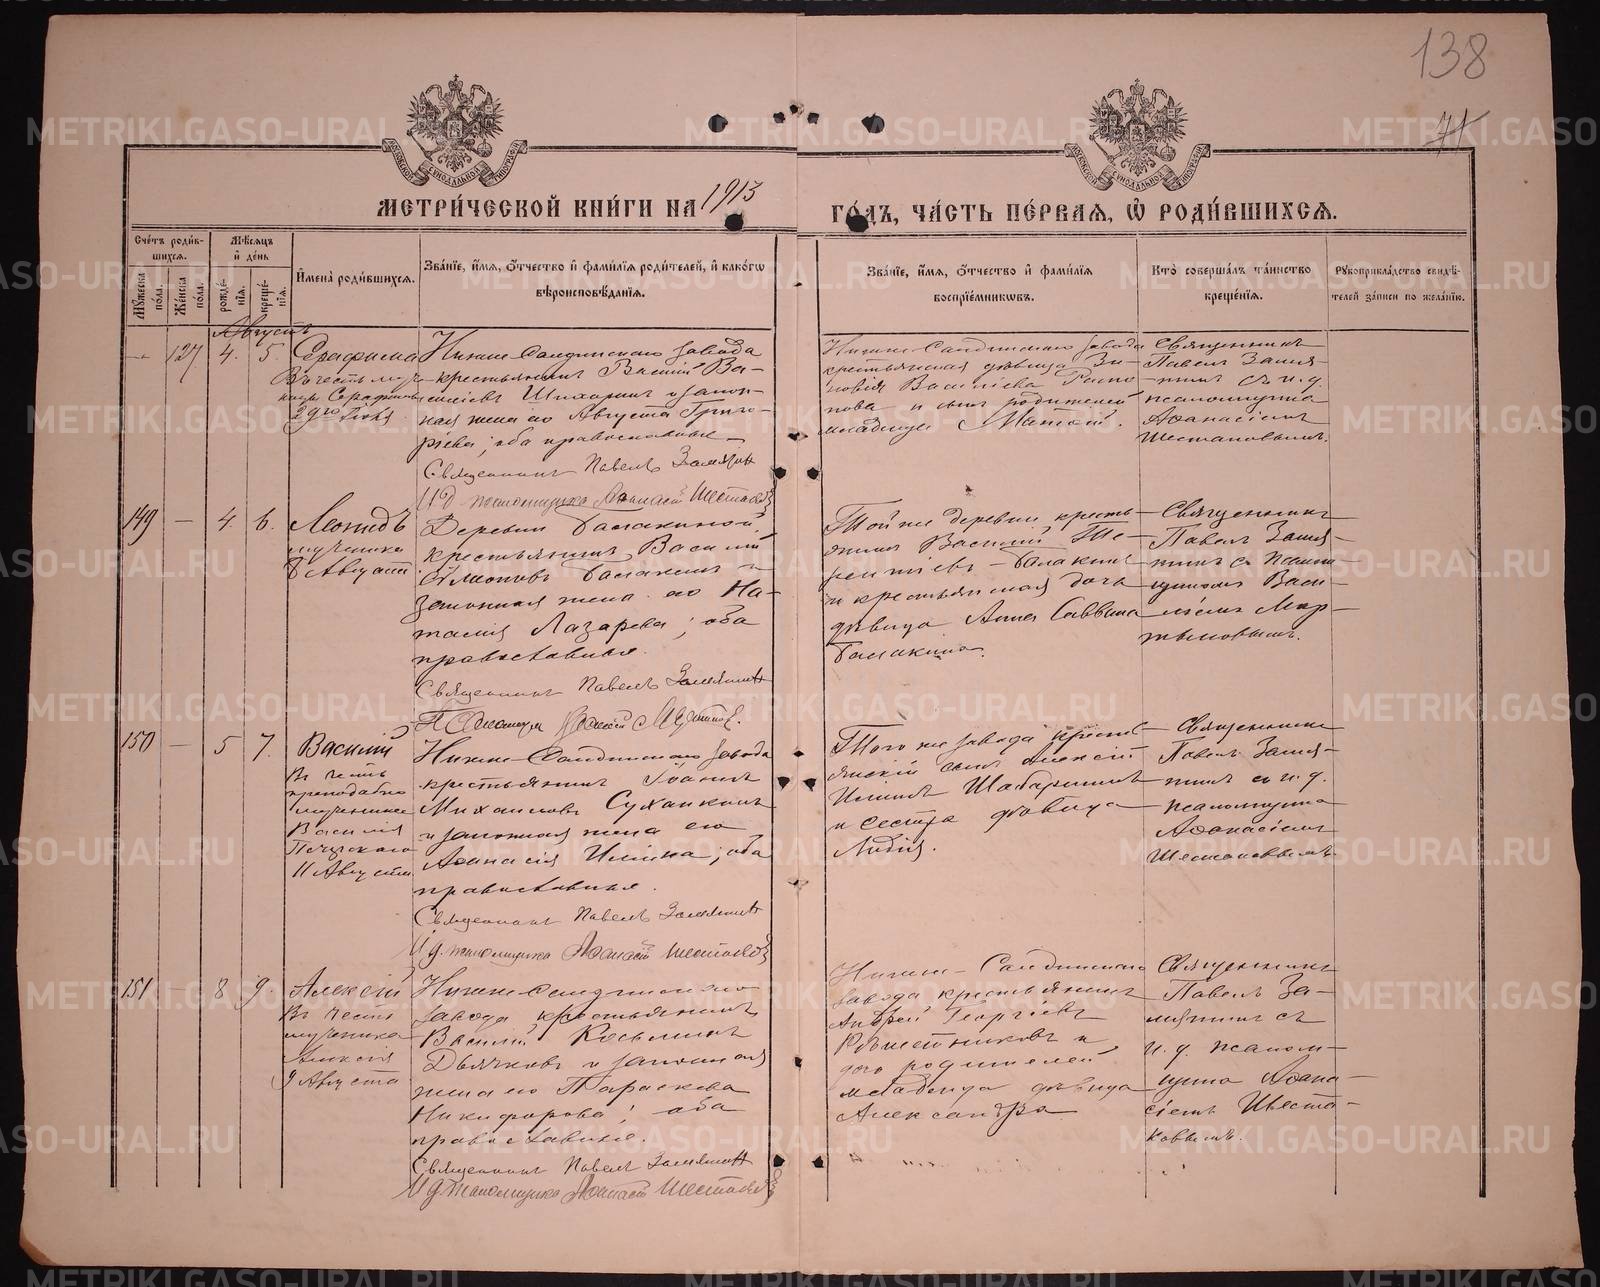 138
71
МЕТРИ́ЧЕСКОЙ КНИ́ГИ НА 1913 ГО́ДЪ, ЧА́СТЬ ПЕ́РВАЯ, Ѡ РОДИ́ВШИХСЯ.
Сче́тъ роди́в-
шихся.
Мѣ́сяцъ
и де́нь
Мꙋ́жеска
пола.
Же́нска
пола.
рожде́-
нїя.
креще́-
нїя.
Имена̀ роди́вшихся.
Зва́нїе, и́мя, ѻ́тчество и фами́лїя роди́телей, и како́гѡ
вѣроисповѣ́данїя.
Зва́нїе, и́мя, ѻ́тчество и фами́лїя
воспрїе́мникѡвъ.
Кто̀ соверша́лъ та́инство
креще́нїя.
Рꙋкоприкла́дство свидѣ́-
телей за́писи по жела́нїю.
Августъ
— 127 4. 5.
Серафима
Въ честь муче-
ницы Серафимы
29го Іюля
Нижне-Салдинскаго завода
крестьянинъ Василій Ва-
сильевъ и закон-
ная жена его Августа Григо-
рьева; оба православные
Священникъ Павелъ Замятин
И д псаломщика Афанасій Шестаковъ
Нижне-Салдинскаго завода
крестьянская дѣвица Зи-
новія Васильева
и сынъ родителей
младенца
Священникъ
Павелъ Замя-
тинъ съ и. д.
псаломщика
Аѳанасіемъ
Шестаковымъ.
149 — 4. 6.
Леонидъ
мученика
8 Августа
Деревни Балакиной,
крестьянинъ Василій
Симеоновъ Балакинъ и
законная жена его На-
талія Лазарева; оба
православные.
Священникъ Павелъ Замятин
Псаломщикъ
Той же деревни, кресть-
янинъ Василій Те-
рентіевъ Балакинъ
и крестьянская дочь
дѣвица Анна Саввина
Балакина.
Священникъ
Павелъ Замя-
тинъ съ псалом-
щикомъ Васи-
ліемъ Мар-
тыновымъ.
150 — 5 7.
Василій
Въ честь
преподобно
мученика
Василія
Печерскаго
11 Августа
Нижне-Салдинскаго завода
крестьянинъ Іоаннъ
Михаиловъ Суханкинъ
и законная жена его
Аѳанасія Ильина; оба
православные.
Священникъ Павелъ Замятин
И д. псаломщика Афанасій Шестаковъ
Того же завода кресть-
янскій сынъ Алексій
Илiинъ Шабаршинъ
и сестра дѣвица
Лидія.
Священникъ
Павелъ Замя-
тинъ съ и. д.
псаломщика
Аѳанасіемъ
Шестаковымъ.
151 — 8 9.
Алексій
Въ честь
мученика
Алексія
9 Августа
Нижне-Салдинскаго
завода, крестьянинъ
Василій Косьминъ
Дьячковъ и законная
жена его Параскева
Никифорова; оба
православные.
Священникъ Павелъ Замятин
И д псаломщика Афанасій Шестаковъ
Нижне-Салдинскаго
завода, крестьянинъ
Андрей Георгіевъ
Рѣшетниковъ и
дочь родителей
младенца дѣвица
Александра
Священникъ
Павелъ За-
мятинъ съ
и. д. псалом-
щика Аѳана-
сіемъ Шеста-
ковымъ.
METRIKI.GASO-URAL.RU